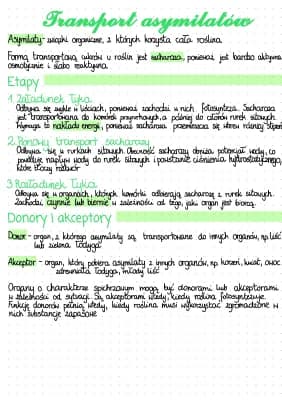 Transport asymilatów
Asymilaty - związki organiczne, z których korzysta cała roślina.
Formą transportową cukrów u roślin jest sacharoza, ponieważ jest bardzo aktywna
osmotycznie i słabo reaktywna.
Etapy
1. Załadunek łyka
Odbywa się zwykle w liściach, ponieważ zachodzi w nich fotosynteza. Sacharoza
jest transportowana do komórek przyrurkowych, a później do członów rurek sitowych.
Wymaga to nakładu energii, ponieważ sacharoza przemieszcza się wbrew różnicy stężeń
2. Pionowy transport sacharozy
Odbywa się w rurkach sitowych. Obecność sacharozy obniża potencjał wody, co
powoduje napływ wody do rurek sitowych i powstanie ciśnienia hydrostatycznego,
które tłoczy roztwór
3 Rozładunek łyka
Odbywa się w organach, których komórki odbierają sacharozę z rurek sitowych.
Zachodzi czynnie lub biernie w zależności od tego, jaki organ jest biorcą.
Donory i akceptory
Donor - organ, z którego asymilaty są transportowane do innych organów, np. liść
lub zielona łodyga
Akceptor - organ, który pobiera asymilaty z innych organów, np. korzeń, kwiat, owoc
zdrewniała łodyga, młody liść
Organy o charakterze spichrzowym mogą być donorami lub akceptorami
w zależności od sytuacji. Są akceptorami wtedy, kiedy roślina fotosyntetyzuje.
Funkcję donorów pełnią wtedy, kiedy roślina musi wykorzystać zgromadzone w
nich substancje zapasowe